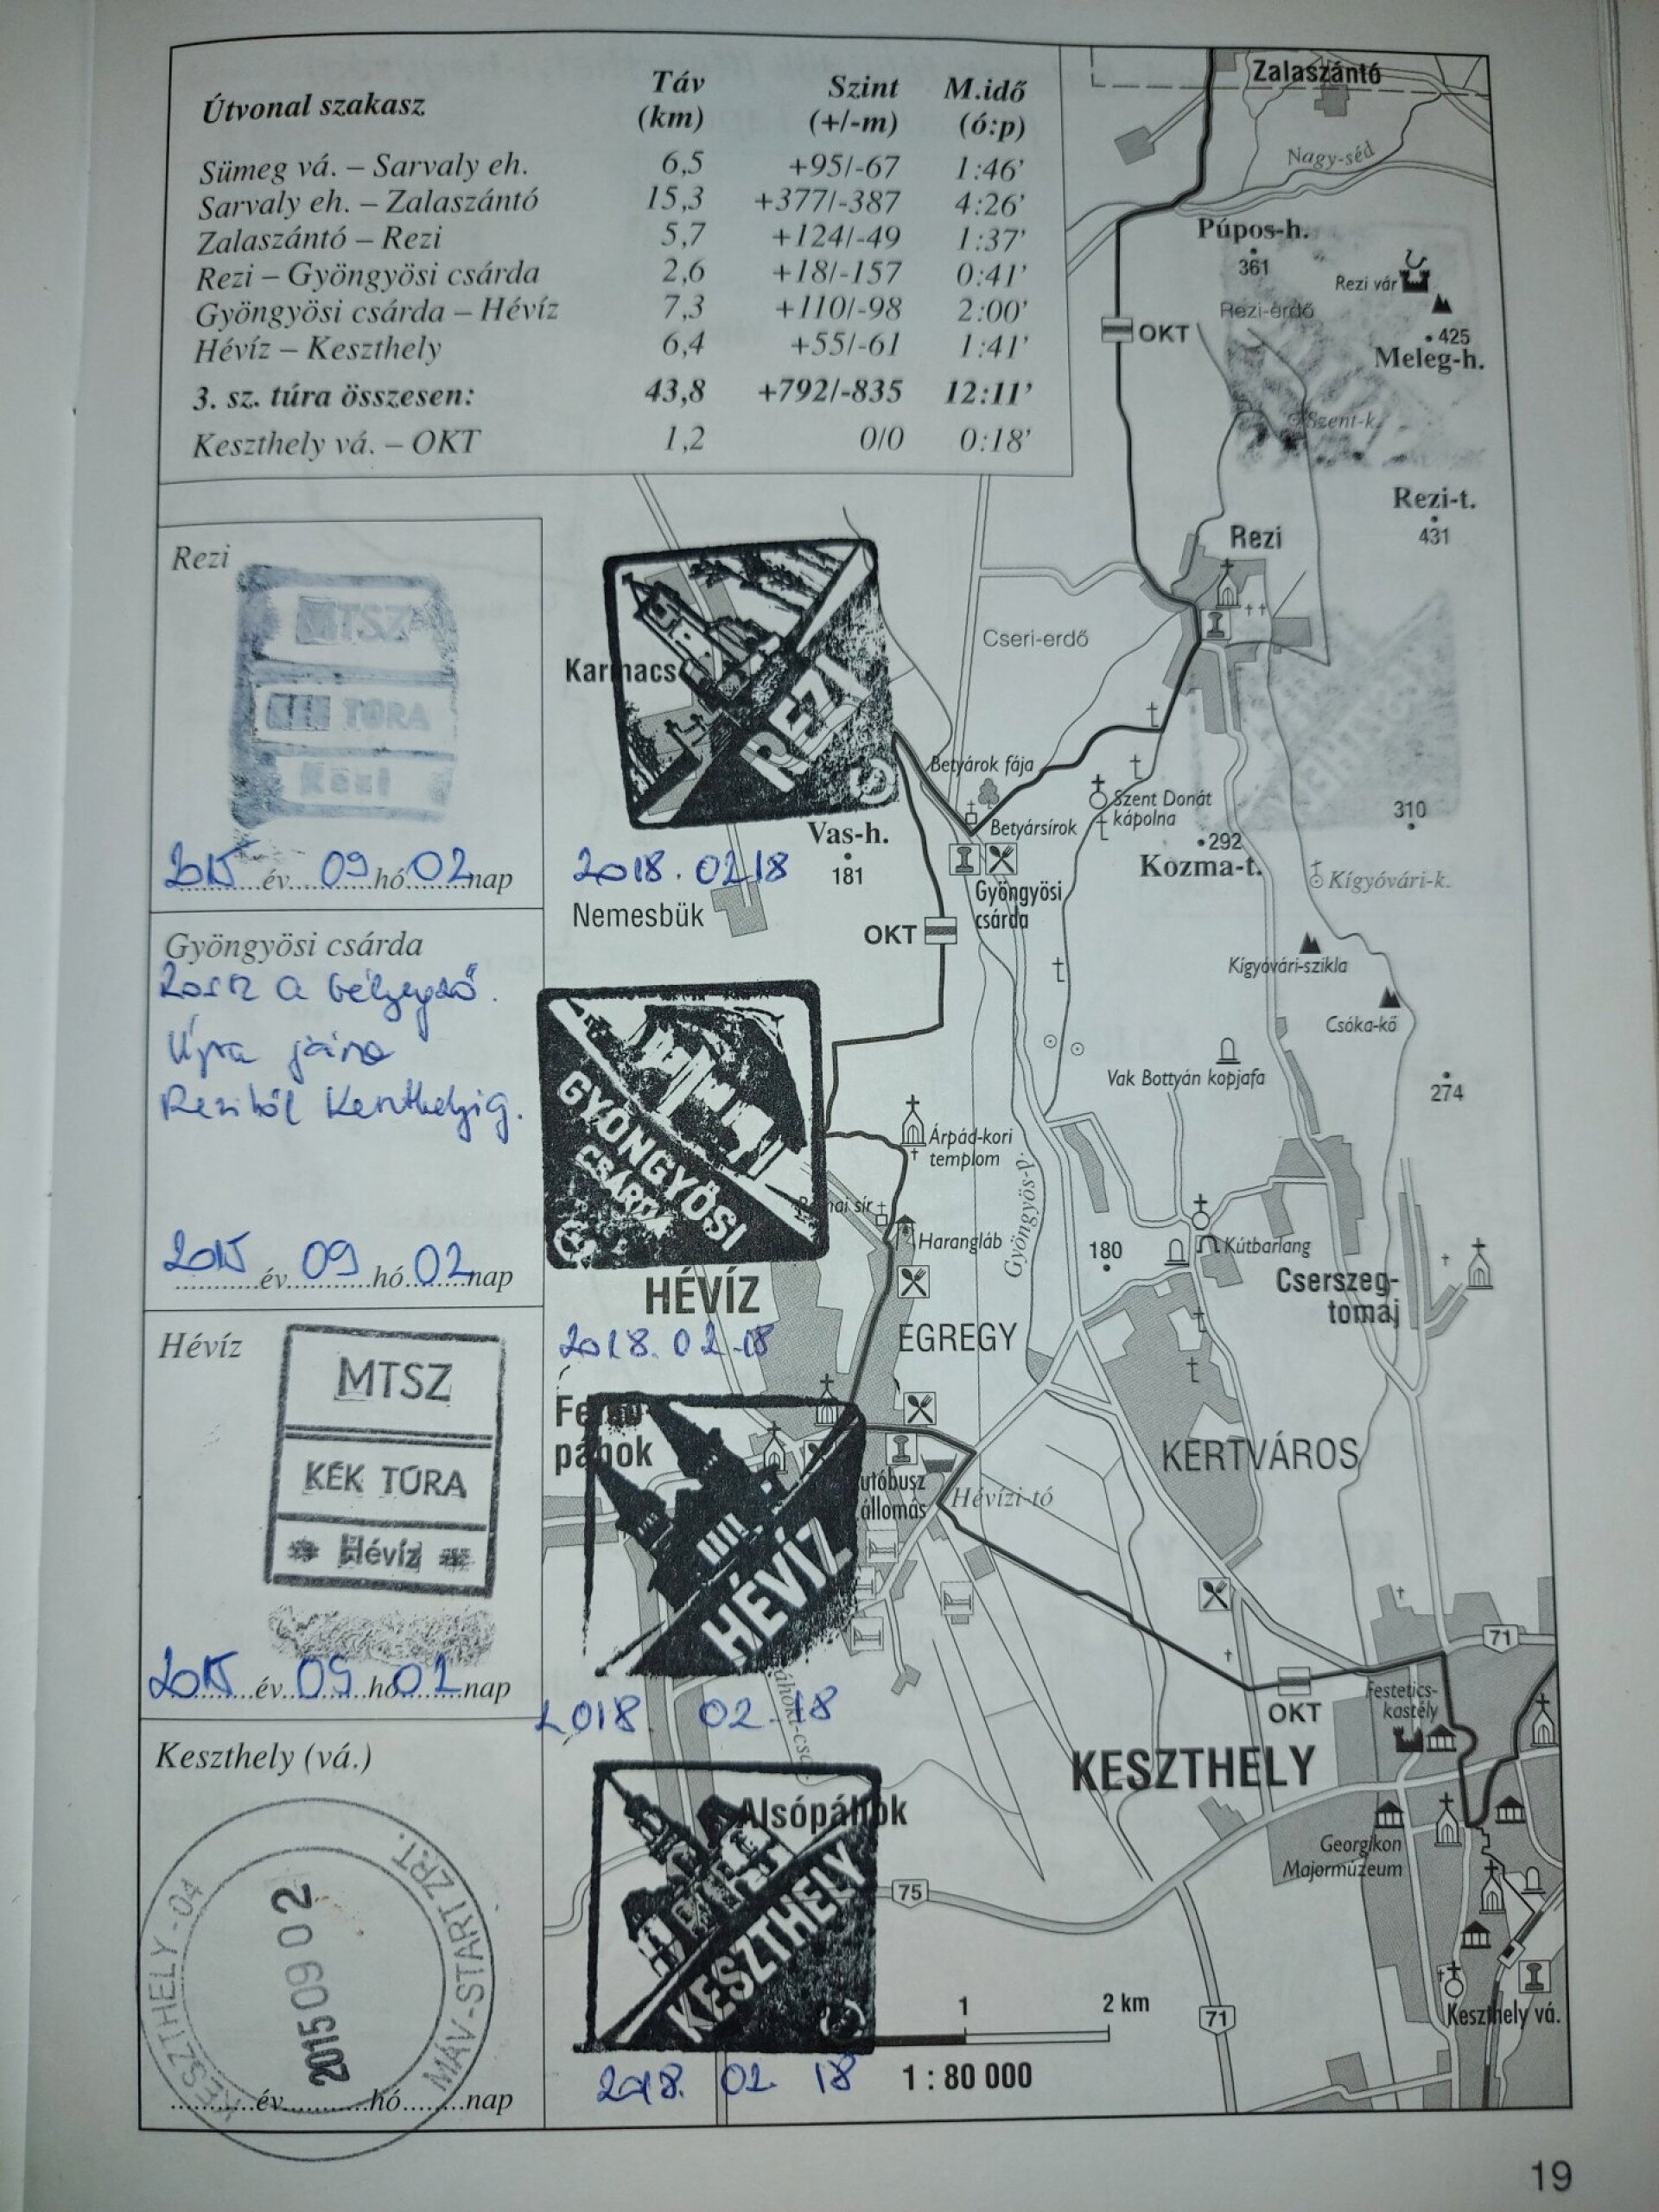 Útvonal szakasz Táv (km) Szint (+/-m) M.idő (ó:p)
Sümeg vá. – Sarvaly eh. 6,5 +95/-67 1:46’
Sarvaly eh. – Zalaszántó 15,3 +377/-387 4:26’
Zalaszántó – Rezi 5,7 +124/-49 1:37’
Rezi – Gyöngyösi csárda 2,6 +18/-157 0:41’
Gyöngyösi csárda – Hévíz 7,3 +110/-98 2:00’
Hévíz – Keszthely 6,4 +55/-61 1:41’
3. sz. túra összesen: 43,8 +792/-835 12:11’
Keszthely vá. – OKT 1,2 0/0 0:18’
Rezi
MTSZ
KÉK TÚRA
Rezi
2015 év 09 hó 02 nap
Gyöngyösi csárda
Rossz a bélyegző.
Újra járva
Rezitől Keszthelyig.
2015 év 09 hó 02 nap
Hévíz
MTSZ
KÉK TÚRA
Hévíz
2015 év 09 hó 02 nap
Keszthely (vá.)
KESZTHELY-04
MÁV-START ZRT.
2015 09 02
év hó nap
Zalaszántó
Nagy-séd
Púpos-h.
361
Rezi vár
Rezi-erdő
OKT
425
Meleg-h.
Szent-k.
Rezi-t.
431
Rezi
Cseri-erdő
Karmacs
REZI
Betyárok fája
Szent Donát
kápolna
Betyársírok
Vas-h.
181
292
Kozma-t.
310
2018. 02 18
Nemesbük
Gyöngyösi
csárda
OKT
Kígyóvári-k.
Kígyóvári-szikla
Csóka-kő
Vak Bottyán kopjafa
274
GYÖNGYÖSI
CSÁRDA
Árpád-kori
templom
Gyöngyös-p.
Harangláb
180
Kútbarlang
Cserszeg-
tomaj
HÉVÍZ
EGREGY
2018. 02.18
Felső-
páhok
KERTVÁROS
HÉVÍZ
autóbusz
állomás
Hévízi-tó
2018. 02.18
71
OKT
Festetics-
kastély
KESZTHELY
Alsópáhok
KESZTHELY
Georgikon
Majormúzeum
75
71
Keszthely vá.
1 2 km
1 : 80 000
2018. 02. 18
19